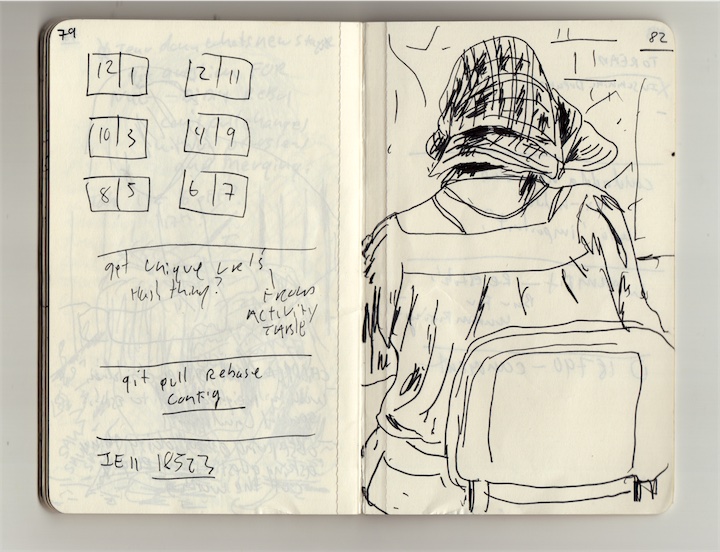 79
12 1 2 11
10 3 4 9
8 5 6 7
get unique urls
Hash thing?
FROM
ACTIVITY
TABLE
git pull rebase
config
IE11 18523
82